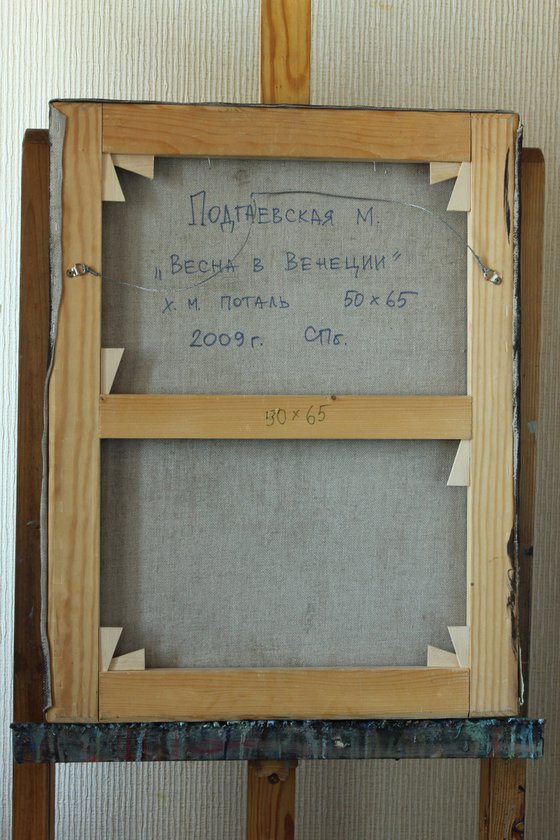 Подгаевская М.
„Весна в Венеции”
х. м. поталь 50 х 65
2009 г. СПб.
50 х 65